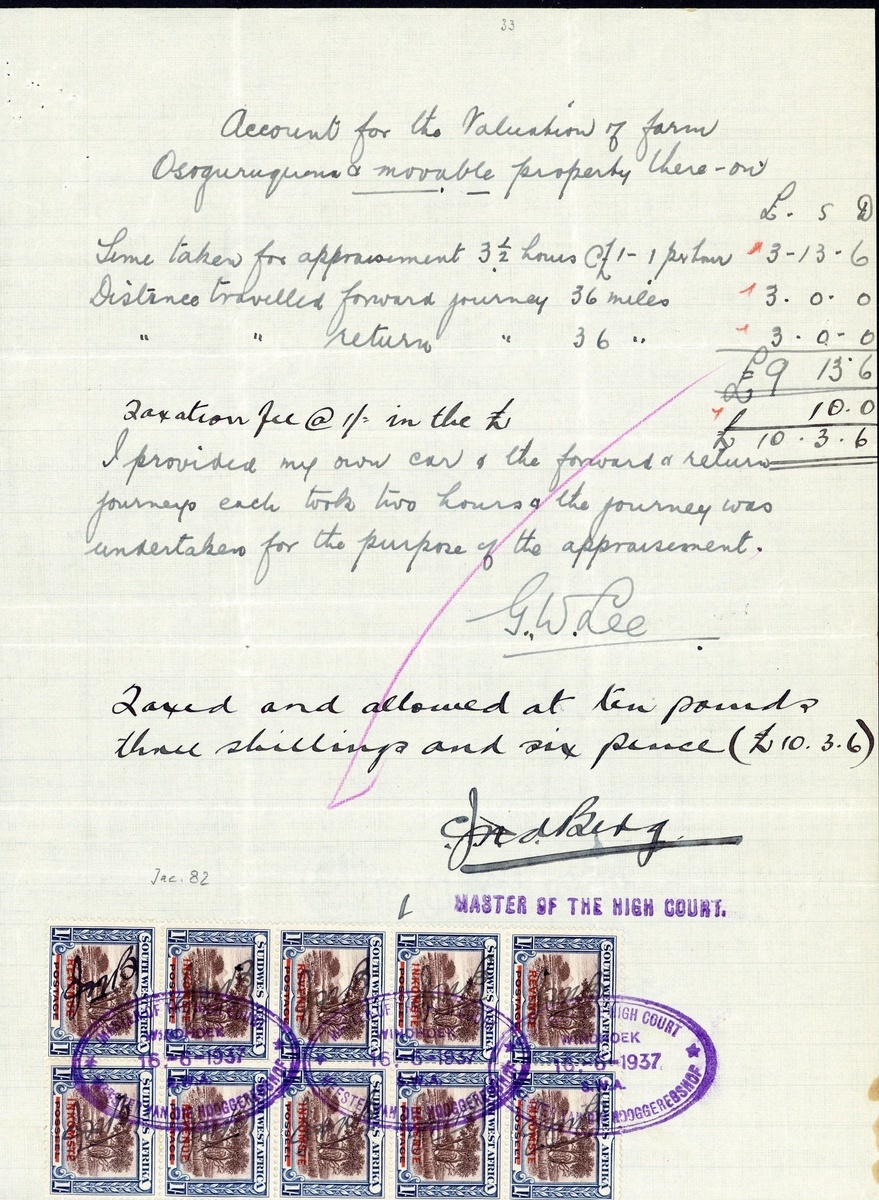 33
Account for the Valuation of farm
Osoguruquena & movable property there-on
£. S D
Time taken for appraisement 3 ½ hours @ £1-1 per hour 3-13-6
Distance travelled forward journey 36 miles 3.0.0
" " return " 36 " 3.0-0
£9 13.6
Taxation fee @ 1/= in the £ 10.0
£ 10.3.6
I provided my own car & the forward & return
journeys each took two hours & the journey was
undertaken for the purpose of the appraisement.
G.W. Lee
Taxed and allowed at ten pounds
three shillings and six pence (£10.3.6)
Jac. 82
MASTER OF THE HIGH COURT.
1/- SOUTH WEST AFRICA POSTAGE REVENUE 1/-
1/- SUIDWES-AFRIKA POSSEEL INKOMSTE 1/-
HIGH COURT
WINDHOEK
16-6-1937
S.W.A.
MEESTER VAN DIE HOOGGEREGSHOF